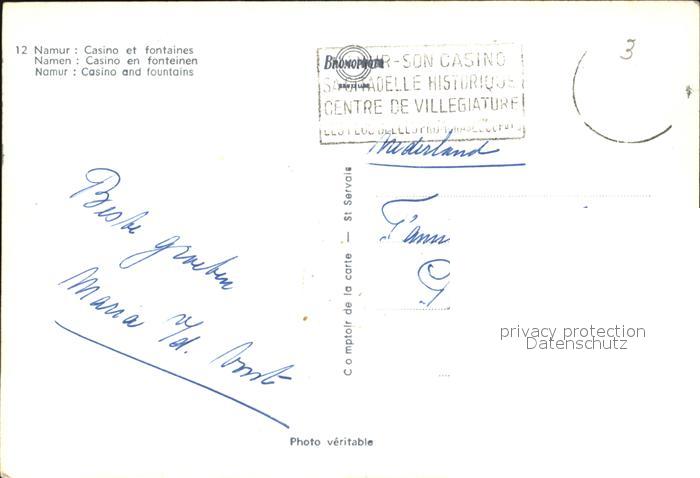 12 Namur : Casino et fontaines
Namen : Casino en fonteinen
Namur : Casino and fountains
BROMOPHOTO
-SON CASINO
SA CITADELLE HISTORIQUE
CENTRE DE VILLEGIATURE
3
Nederland
Beste groeten
Maria v/d.
Comptoir de la carte — St Servais
Photo véritable
privacy protection
Datenschutz